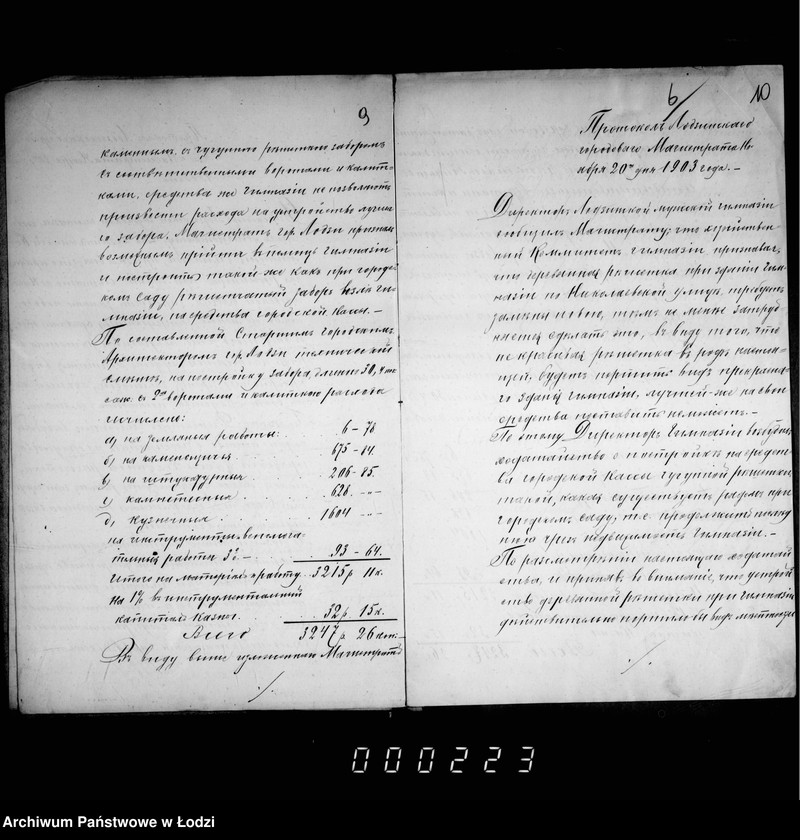 9
каменнымъ съ чугунною рѣшеткою заборомъ
съ соотвѣтственными воротами и калит-
ками, средства же гимназіи не позволяютъ
произвести расхода на устройство
го забора. Магистратъ гор. Лодзи призналъ
возможнымъ прійти въ помощь гимназіи
и построить такой же какъ при город-
комъ саду рѣшетчатый заборъ возлѣ ги-
мназіи, на средства городской Кассы. –
По составленной Старшимъ Городскимъ
Архитекторомъ гор. Лодзи технической
смѣтѣ, на постройку забора, длиною 50,4
саж. съ 2мя воротами и калиткою расхода
исчислено:
а) на земляныя работы: 6 – 76
б) на каменщичьи 675 – 84.
в) на штукатурныя 206 – 85.
г) каменотесныя 628. –„–
д) кузнечныя 1604 –„–
на инструменты
работы 3% – 93 – 64.
Итого на матеріалъ и работу 3215 р 11 к.
на 1% въ инструментальный
капиталъ Казны. 32 р. 15 к.
Всего 3247 р 26 коп.
Въ виду выше изложеннаго Магистратъ
./.
6/
10
Протоколъ Лодзинскаго
городового Магистрата Но-
ября 20го дня 1903 года. –
Директоръ Лодзинской мужской гимназіи
сообщилъ Магистрату, что хозяйствен-
ный Комитетъ гимназіи признавая,
что деревянная рѣшетка при зданіи гим-
назіи по Николаевской улицѣ, требуетъ
замѣны новою, тѣмъ не менѣе затруд-
няется сдѣлать это, въ виду того, что
не красивая рѣшетка въ родѣ настоя-
щей, будетъ портить видъ прекрасна-
го зданія гимназіи, лучшей-же на свои
средства поставить не можетъ. –
По этому Директоръ Гимназіи возбудилъ
ходатайство о постройкѣ на средст-
ва городской Кассы чугунной рѣшетки
такой, какая существуетъ рядомъ при
городскомъ саду, т.е. продолжить
ную чрезъ Гимназіи. –
По разсмотрѣніи настоящаго ходатай-
ства, и принявъ во вниманіе, что устрой-
ство деревянной рѣшетки при гимназіи
дѣйствительно портило бы видъ
./.
000223
Archiwum Państwowe w Łodzi